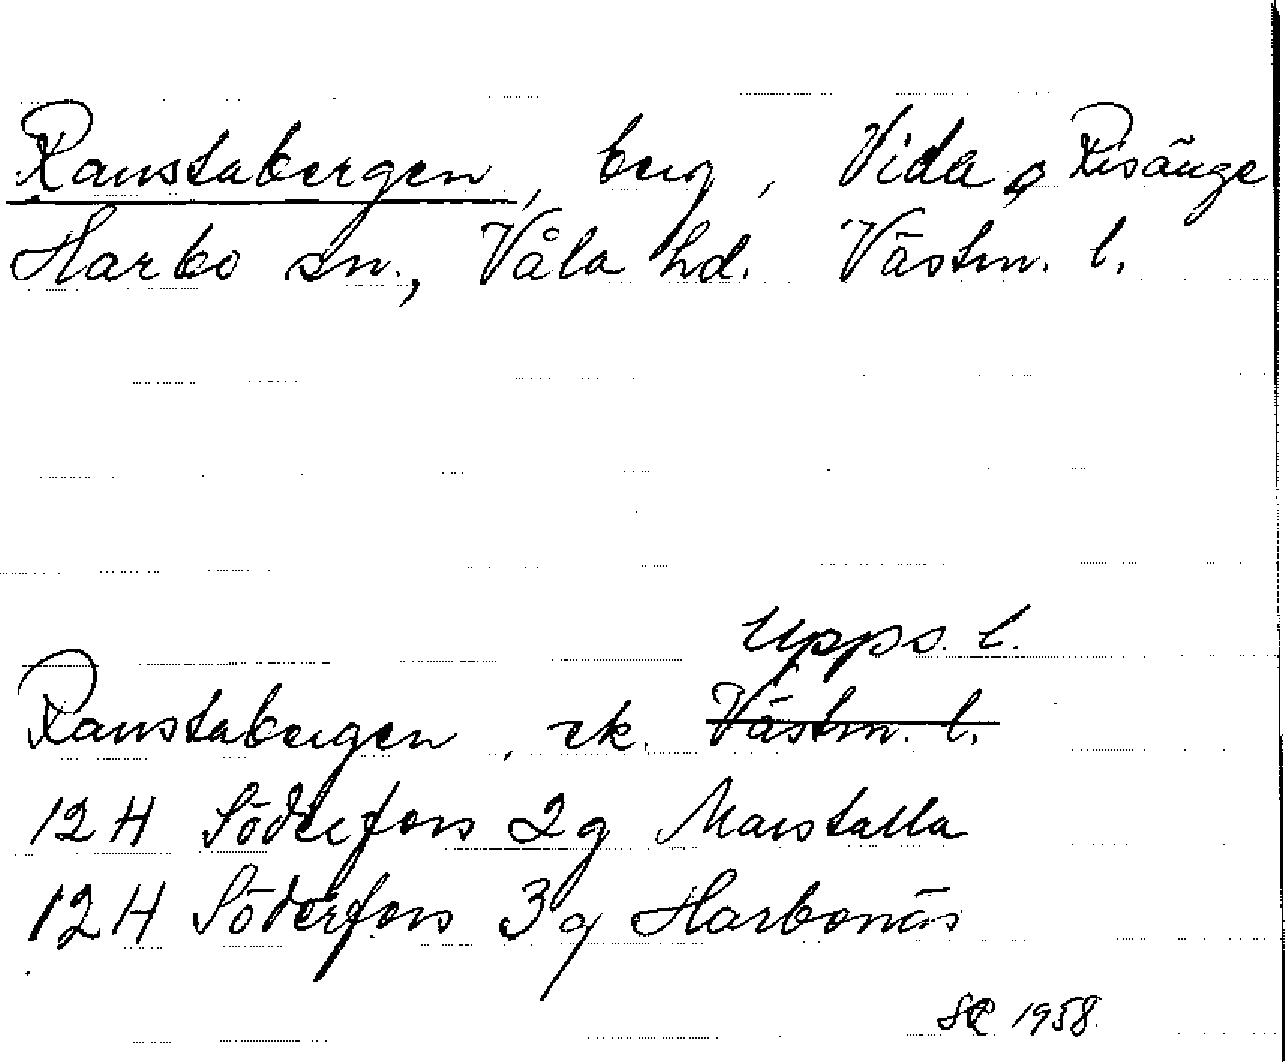 Ranstabergen, berg, Vida o Risänge
Harbo sn., Våla hd. Västm. l.
Upps. l.
Ranstabergen, ek. Västm. l.
12 H Söderfors 2g Marstalla
12 H Söderfors 3g Harbonäs
1958